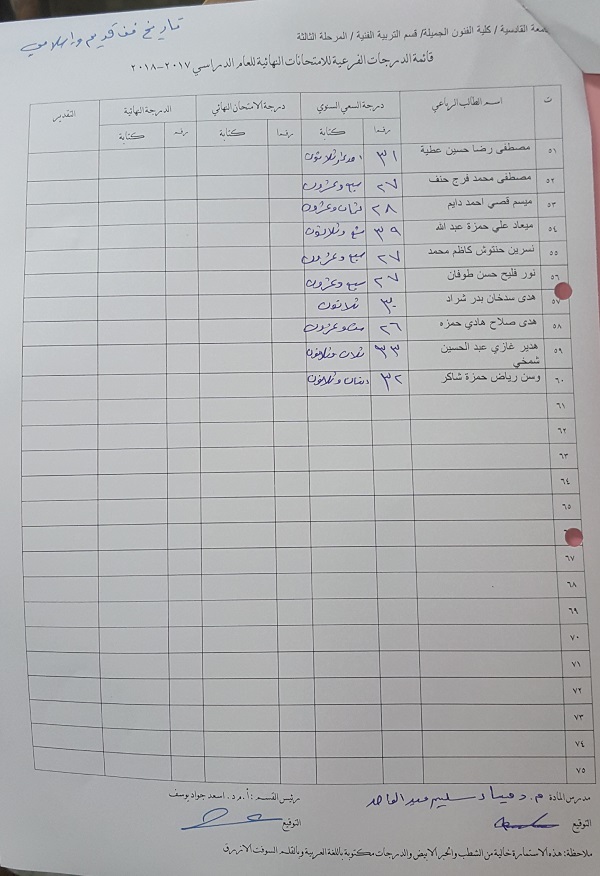 تاريخ فن قديم واسلامي
جامعة القادسية / كلية الفنون الجميلة/ قسم التربية الفنية / المرحلة الثالثة
قائمة الدرجات الفرعية للامتحانات النهائية للعام الدراسي ٢٠١٧-٢٠١٨
ت اسم الطالب الرباعي درجة السعي السنوي درجة الامتحان النهائي الدرجة النهائية التقدير
رقما كتابة رقما كتابة رقما كتابة
٥١ مصطفى رضا حسين عطية ٣١ احدى وثلاثون
٥٢ مصطفى محمد فرج حنف ٢٧ سبع وعشرون
٥٣ ميسم قصي احمد دايم ٢٨ ثمان وعشرون
٥٤ ميعاد علي حمزة عبد الله ٣٩ تسع وثلاثون
٥٥ نسرين حنتوش كاظم محمد ٢٧ سبع وعشرون
٥٦ نور فليح حسن طوفان ٢٧ سبع وعشرون
٥٧ هدى سدخان بدر شراد ٣٠ ثلاثون
٥٨ هدى صلاح هادي حمزه ٢٦ ست وعشرون
٥٩ هدير غازي عبد الحسين شمخي ٣٣ ثلاث وثلاثون
٦٠ وسن رياض حمزة شاكر ٣٢ اثنان وثلاثون
٦١
٦٢
٦٣
٦٤
٦٥
٦٧
٦٨
٦٩
٧٠
٧١
٧٢
٧٣
٧٤
٧٥
مدرس المادة م.د. سليم عبد الواحد رئيس القسم : أ.م.د. اسعد جواد يوسف
التوقيع التوقيع
ملاحظة: هذه الاستمارة خالية من الشطب والحبر الابيض والدرجات مكتوبة باللغة العربية وبالقلم السوفت الازرق